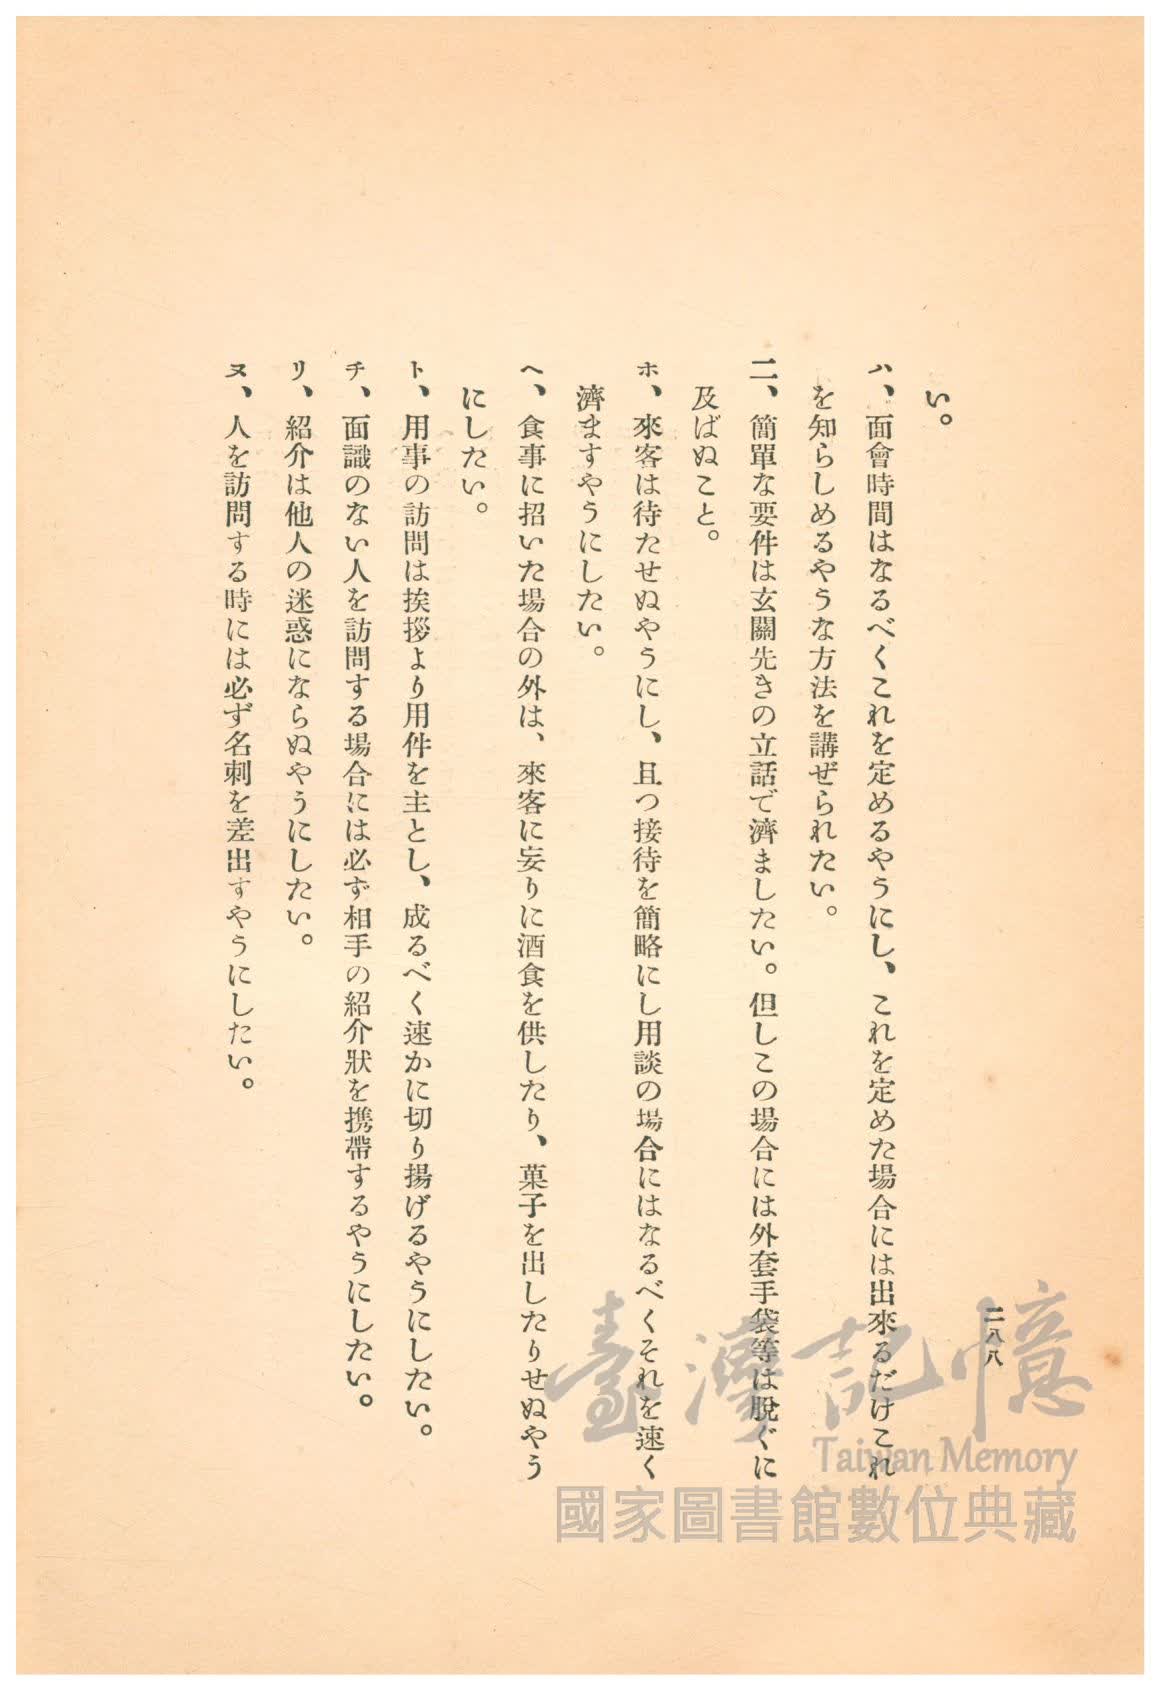 二八八
い。
ハ、面會時間はなるべくこれを定めるやうにし、これを定めた場合には出來るだけこれ
を知らしめるやうな方法を講ぜられたい。
ニ、簡單な要件は玄關先きの立話で濟ましたい。但しこの場合には外套手袋等は脫ぐに
及ばぬこと。
ホ、來客は待たせぬやうにし、且つ接待を簡略にし用談の場合にはなるべくそれを速く
濟ますやうにしたい。
ヘ、食事に招いた場合の外は、來客に妄りに酒食を供したり、菓子を出したりせぬやう
にしたい。
ト、用事の訪問は挨拶より用件を主とし、成るべく速かに切り揚げるやうにしたい。
チ、面識のない人を訪問する場合には必ず相手の紹介狀を携帶するやうにしたい。
リ、紹介は他人の迷惑にならぬやうにしたい。
ヌ、人を訪問する時には必ず名刺を差出すやうにしたい。
臺灣記憶
Taiwan Memory
國家圖書館數位典藏